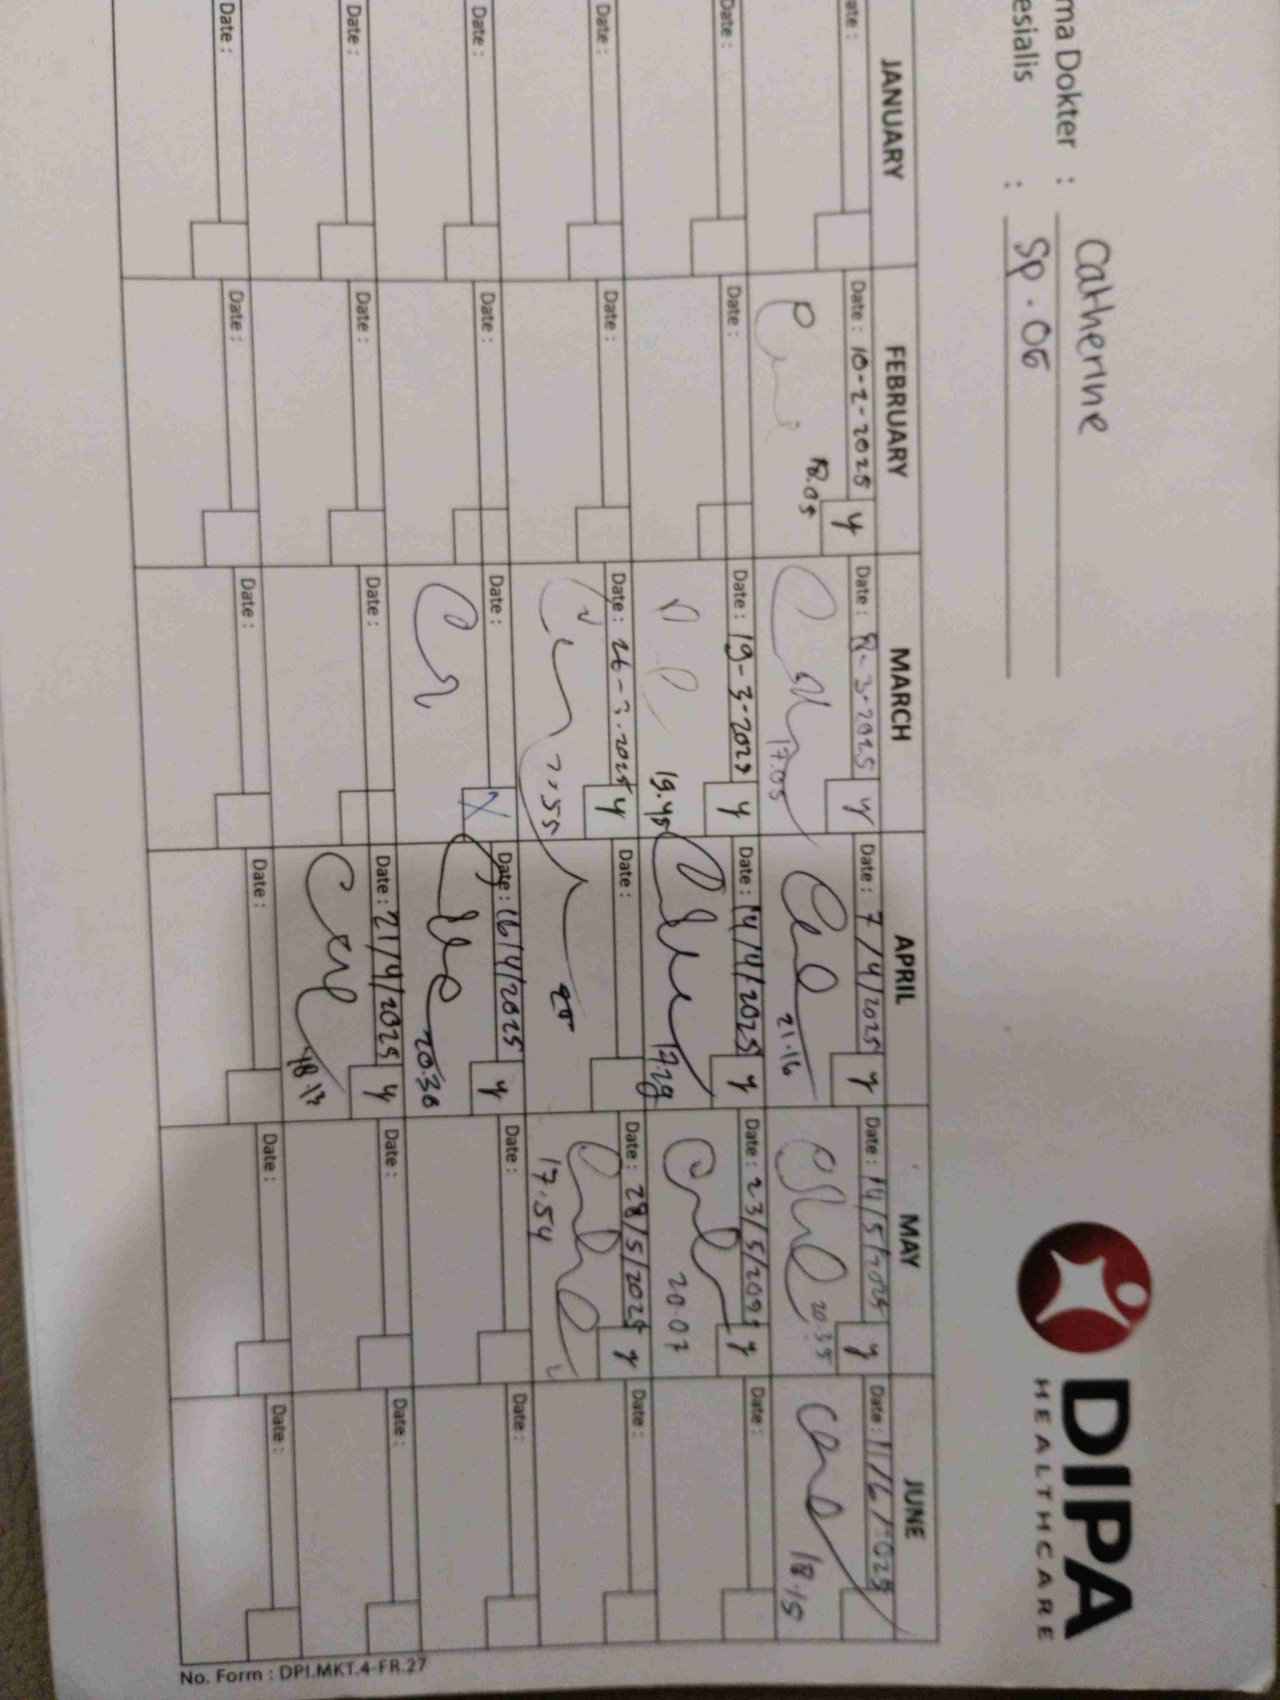 ma Dokter : Catherine
esialis : Sp. OG
DIPA
HEALTHCARE
JANUARY FEBRUARY MARCH APRIL MAY JUNE
ate : Date : 10-2-2025 y Date : -3-2025 y Date : 7/4/2025 y Date : 14/5/2025 y Date : 11/6/2025
18.05 17.05 21.16 20.35 18.15
Date : Date : Date : 19-3-2025 y Date : 14/4/2025 y Date : 23/5/2025 y Date :
19.45 17.29 20.07
Date : Date : Date : 26-3-2025 y Date : Date : 28/5/2025 y Date :
17.54
Date : Date : Date : X Date : 16/4/2025 y Date : Date :
20.36
Date : Date : Date : Date : 21/4/2025 y Date : Date :
18.13
Date : Date : Date : Date : Date : Date :
No. Form : DPI.MKT.4-FR.27